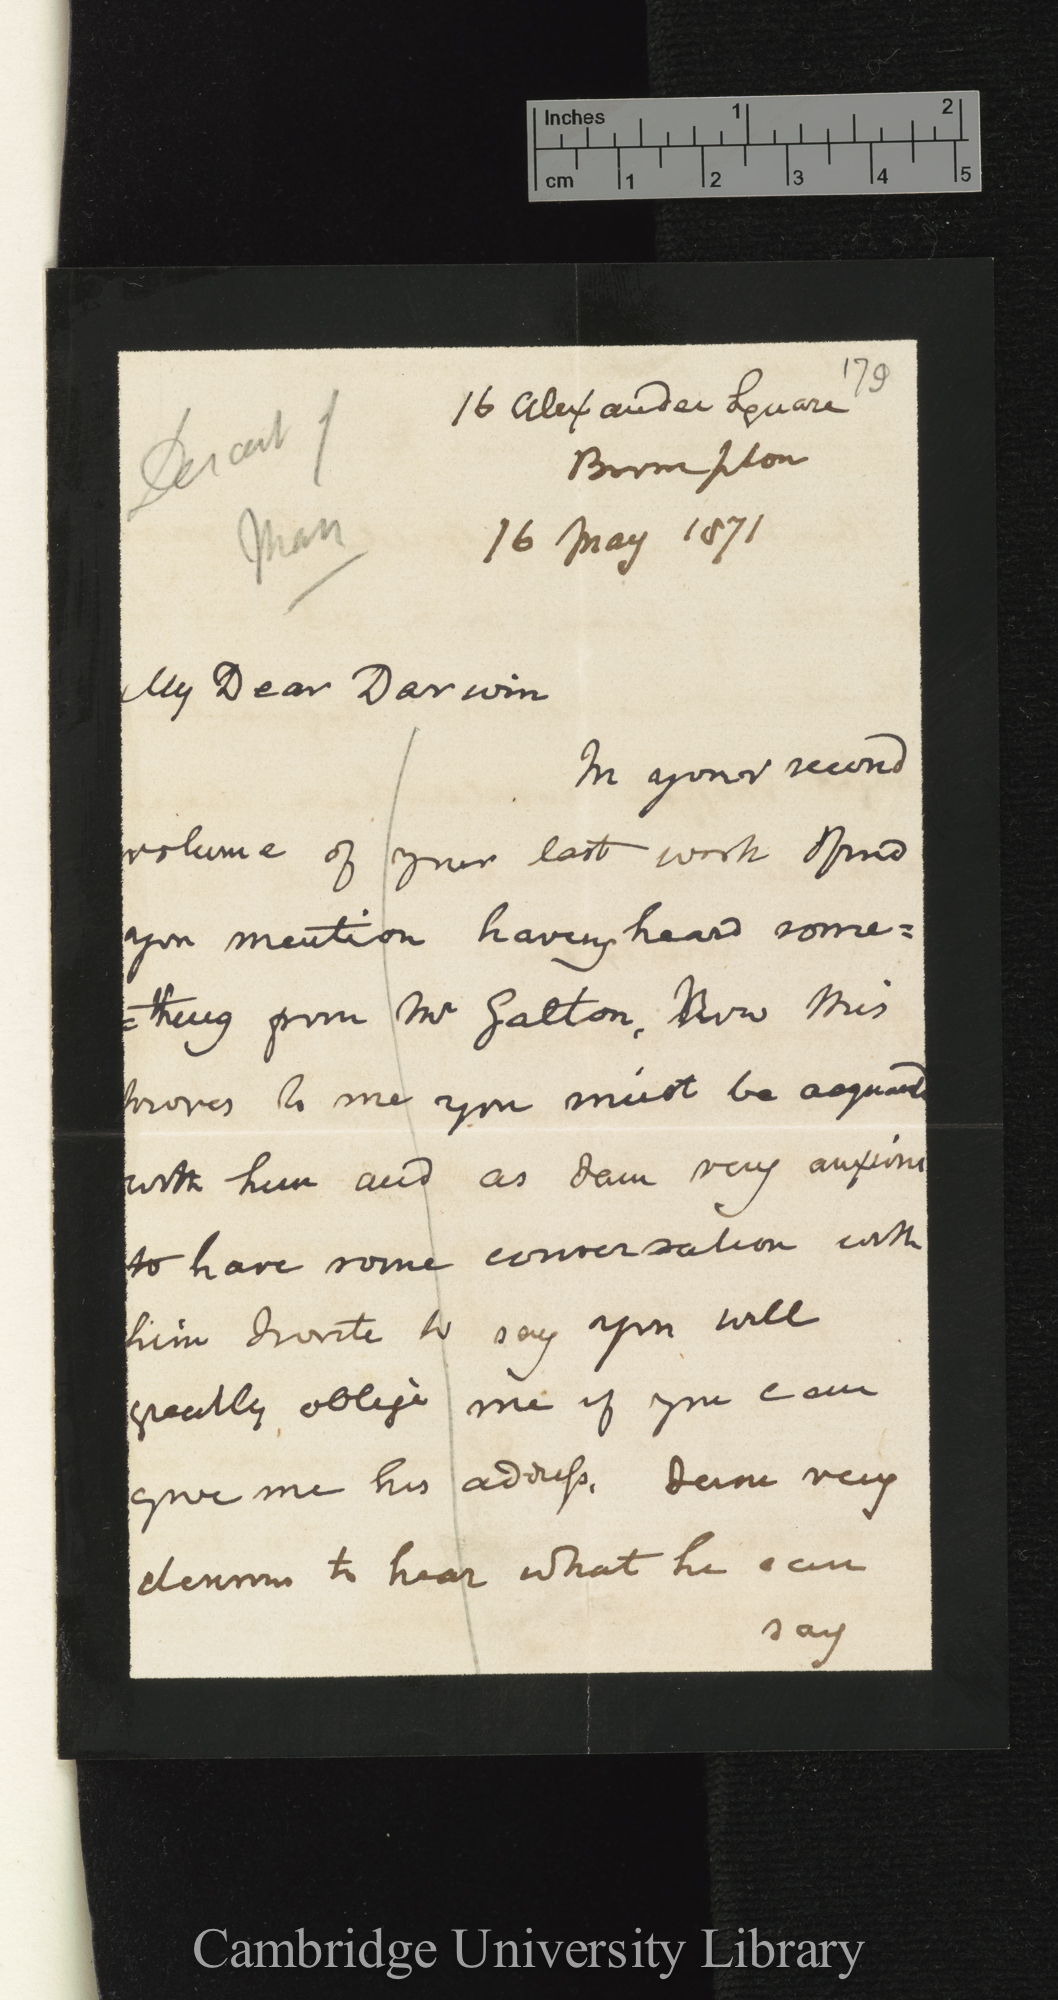 Inches 1 2
cm 1 2 3 4 5
179
16 Alexander Square
Brompton
16 May 1871
Descent of
Man
My Dear Darwin
In your second
volume of your last work I find
you mention having heard some=
=thing from Mr Galton, Now this
proves to me you must be acquaint
with him and as I am very anxious
to have some conversation with
him I write to say you will
greatly oblige me if you can
give me his address. I am very
desirous to hear what he can
say
Cambridge University Library